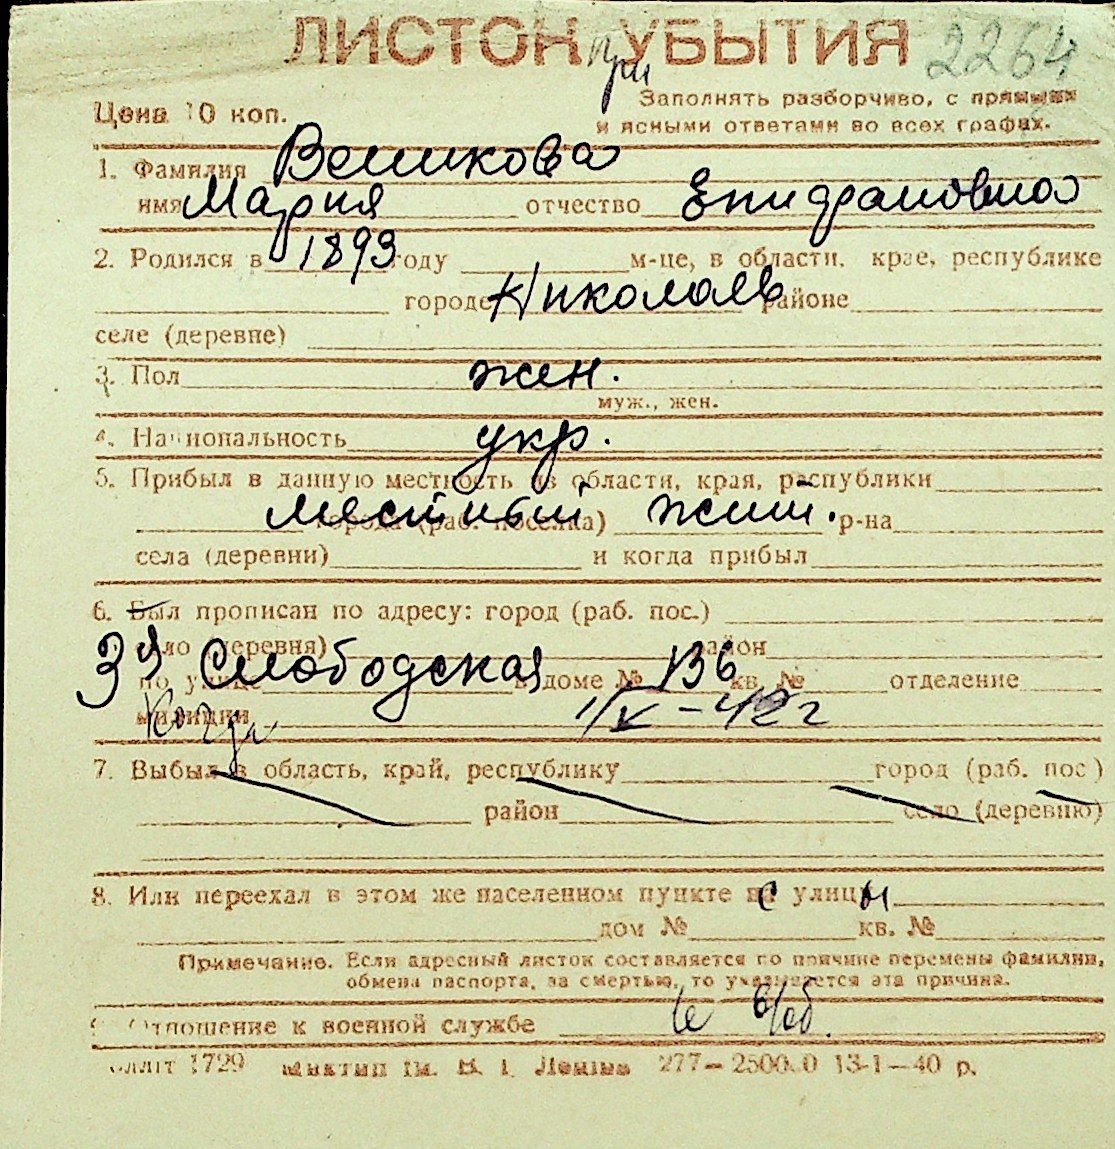 ЛИСТОК при УБЫТИЯ 2264
Цена 10 коп.
Заполнять разборчиво, с прямыми
и ясными ответами во всех графах.
1. Фамилия Великова
имя Мария отчество
2. Родился в 1893 году м-це, в области, крае, республике
городе Николаев районе
селе (деревне)
3. Пол жен.
муж., жен.
4. Национальность укр.
5. Прибыл в данную местность из области, края, республики
местный жит.
города (раб. поселка) р-на
села (деревни) и когда прибыл
6. Был прописан по адресу: город (раб. пос.)
село (деревня) район
по улице 3я Слободская в доме № 136 кв. № отделение
милиции Когда 1/V-42 г
7. Выбыл в область, край, республику город (раб. пос)
район село (деревню)
8. Или переехал в этом же населенном пункте с улицы
дом № кв. №
Примечание. Если адресный листок составляется по причине перемены фамилии,
обмена паспорта, за смертью, то указывается эта причина.
9. Отношение к военной службе
1729 ім. В. І. Леніна 277— 13-1—40 р.